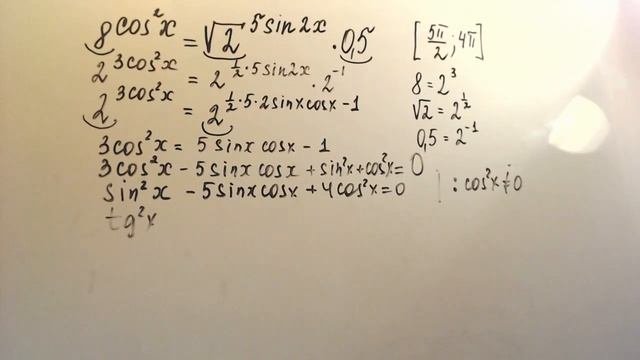 8^cos²x = √2^5sin2x · 0,5
2^3cos²x = 2^½·5sin2x · 2^-1
2^3cos²x = 2^½·5·2sinxcosx-1
3cos²x = 5sinx cosx - 1
3cos²x - 5sinx cosx + sin²x + cos²x = 0
sin²x - 5sinxcosx + 4cos²x = 0 | : cos²x ≠ 0
tg²x
[5π/2; 4π]
8 = 2³
√2 = 2^½
0,5 = 2^-1